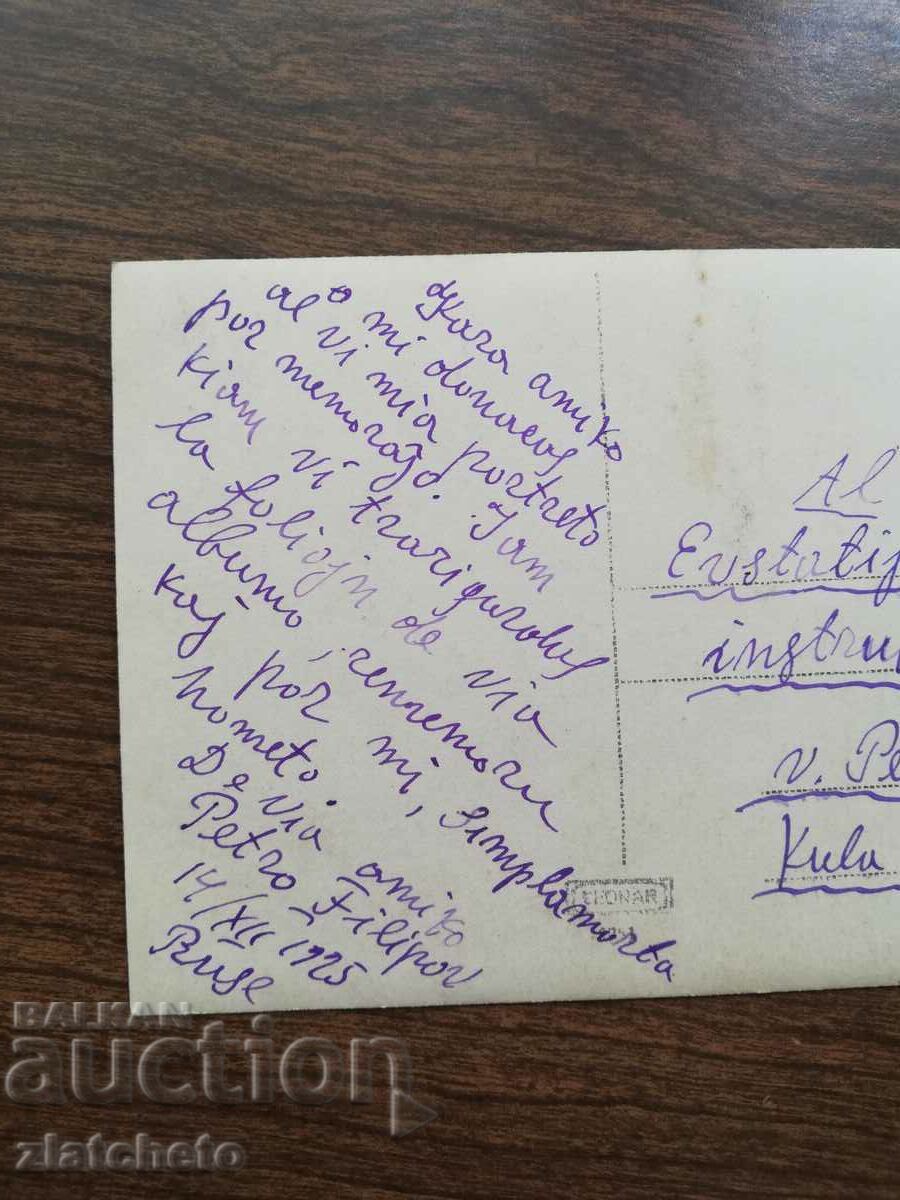 Kara amiko
mi donacas
al vi mia portreto
por memorajo. Iam
kiam vi trarigardos
la foliojn de via
albumo, rememoru
kaj por mi, simplamorta
hometo.
De via amiko
Petro Filipov
14/XII 1925
Ruse
LEONAR
Al
Evstatij
instru
v. Pe
Kula
BALKAN
auction
zlatcheto